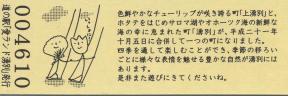 道の駅「愛ランド湧別」発行
0004610
色鮮やかなチューリップが咲き誇る町「上湧別」と、
ホタテをはじめサロマ湖やオホーツク海の新鮮な
海の幸に恵まれた町「湧別」が、平成二十一年
十月五日に合併して一つの町になりました。
四季を通して楽しむことができ、季節の移ろい
ごとに様々な表情を魅せる豊かな自然が湧別には
あります。
是非また遊びにきてくださいね。